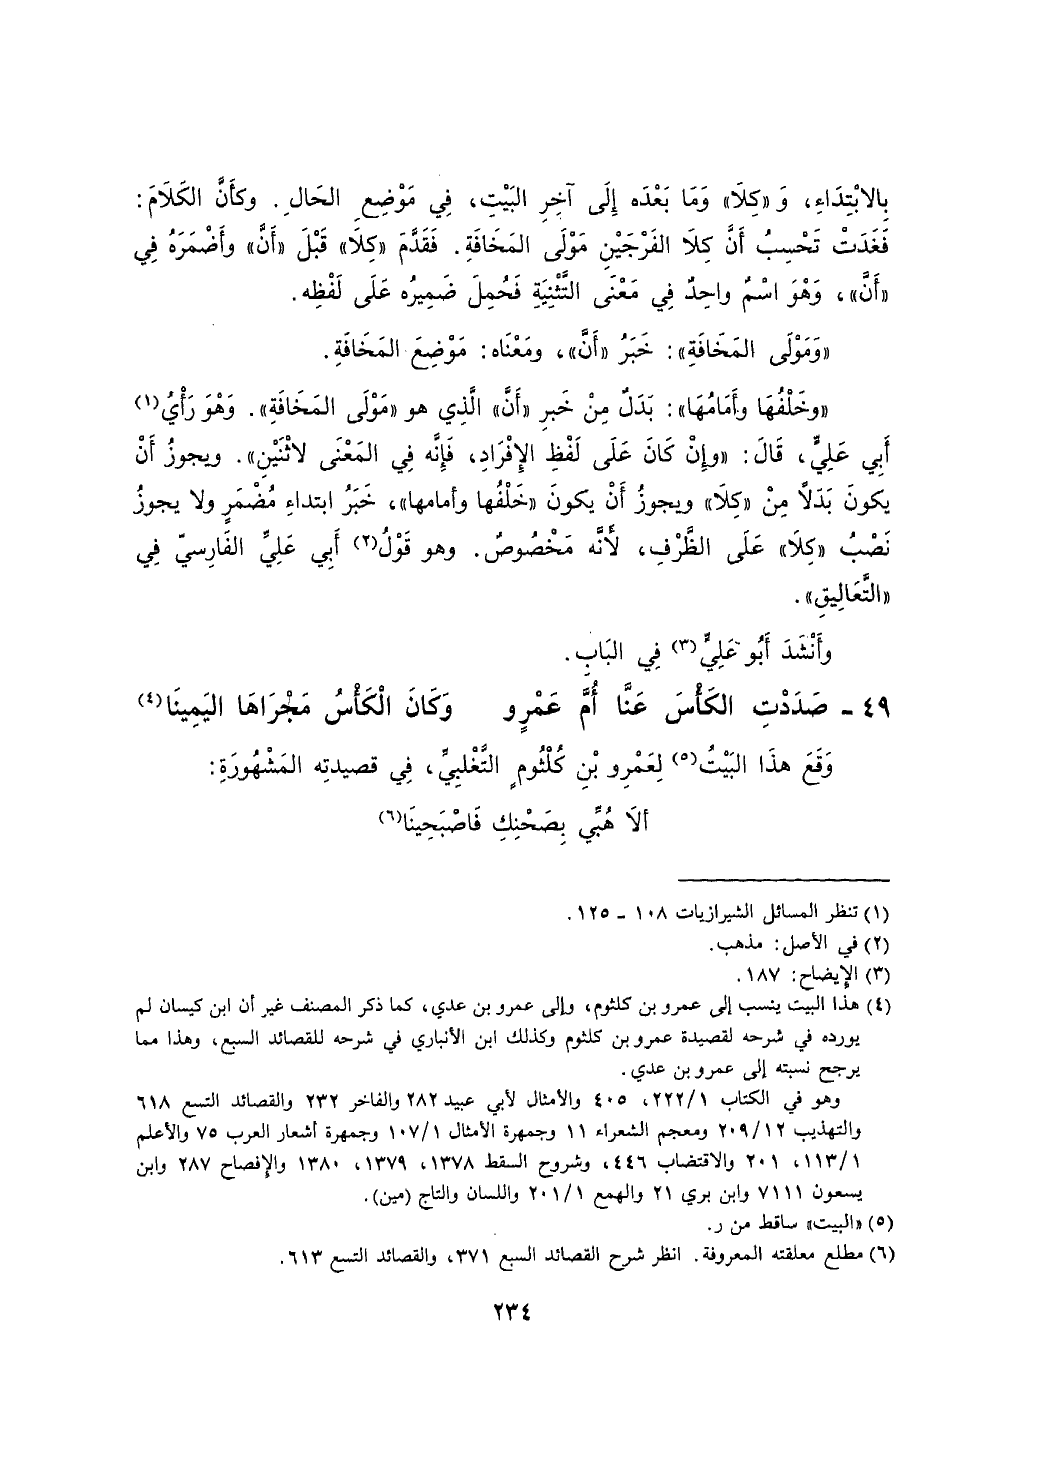 بِالابْتِدَاءِ، وَ «كِلَا» وَمَا بَعْدَه إِلَى آخِرِ البَيْتِ، فِي مَوْضِعِ الحَالِ. وكأَنَّ الكَلَامَ:
فَغَدَتْ تَحْسِبُ أَنَّ كِلَا الفَرْجَيْنِ مَوْلَى المَخَافَةِ. فَقَدَّمَ «كِلَا» قَبْلَ «أَنَّ» وأَضْمَرَهُ فِي
«أَنَّ»، وَهْوَ اسْمٌ واحِدٌ فِي مَعْنَى التَّثْنِيَةِ فَحُمِلَ ضَمِيرُه عَلَى لَفْظِه.
«وَمَوْلَى المَخَافَةِ»: خَبَرُ «أَنَّ»، ومَعْنَاه: مَوْضِعَ المَخَافَةِ.
«وخَلْفُهَا وأَمَامُهَا»: بَدَلٌ مِنْ خَبرِ «أَنَّ» الَّذِي هو «مَوْلَى المَخَافَةِ». وَهْوَ رَأْيُ(١)
أَبِي عَلِيٍّ، قَالَ: «وإِنْ كَانَ عَلَى لَفْظِ الإِفْرَادِ، فَإِنَّه فِي المَعْنَى لاثْنَيْنِ». ويجوزُ أَنْ
يكونَ بَدَلاً مِنْ «كِلَا» ويجوزُ أَنْ يكونَ «خَلْفُها وأمامها»، خَبَرُ ابتداءِ مُضْمَرٍ ولا يجوزُ
نَصْبُ «كِلَا» عَلَى الظَّرْفِ، لأَنَّه مَخْصُوصٌ. وهو قَوْلُ(٢) أَبِي عَلِيٍّ الفَارِسيّ فِي
«التَّعَالِيقِ».
وأَنْشَدَ أَبُو عَلِيٍّ(٣) فِي البَابِ.
٤٩ ـ صَدَدْتِ الكَأْسَ عَنَّا أُمَّ عَمْرٍو وَكَانَ الْكَأْسُ مَجْرَاهَا اليَمِينَا(٤)
وَقَعَ هذَا البَيْتُ(٥) لِعَمْرِو بْنِ كُلْثُومٍ التَّغْلبِيِّ، فِي قصيدتِه المَشْهُورَةِ:
ألَا هُبِّي بِصَحْنِكِ فَاصْبَحِينَا(٦)
(١) تنظر المسائل الشيرازيات ١٠٨ ـ ١٢٥.
(٢) في الأصل: مذهب.
(٣) الإيضاح: ١٨٧.
(٤) هذا البيت ينسب إلى عمرو بن كلثوم، وإلى عمرو بن عدي، كما ذكر المصنف غير أن ابن كيسان لم
يورده في شرحه لقصيدة عمرو بن كلثوم وكذلك ابن الأنباري في شرحه للقصائد السبع، وهذا مما
يرجح نسبته إلى عمرو بن عدي.
وهو في الكتاب ٢٢٢/١، ٤٠٥ والأمثال لأبي عبيد ٢٨٢ والفاخر ٢٣٢ والقصائد التسع ٦١٨
والتهذيب ٢٠٩/١٢ ومعجم الشعراء ١١ وجمهرة الأمثال ١٠٧/١ وجمهرة أشعار العرب ٧٥ والأعلم
١١٣/١، ٢٠١ والاقتضاب ٤٤٦، وشروح السقط ١٣٧٨، ١٣٧٩، ١٣٨٠ والإفصاح ٢٨٧ وابن
يسعون ٧١١١ وابن بري ٢١ والهمع ٢٠١/١ واللسان والتاج (مين).
(٥) «البيت» ساقط من ر.
(٦) مطلع معلقته المعروفة. انظر شرح القصائد السبع ٣٧١، والقصائد التسع ٦١٣.
٢٣٤